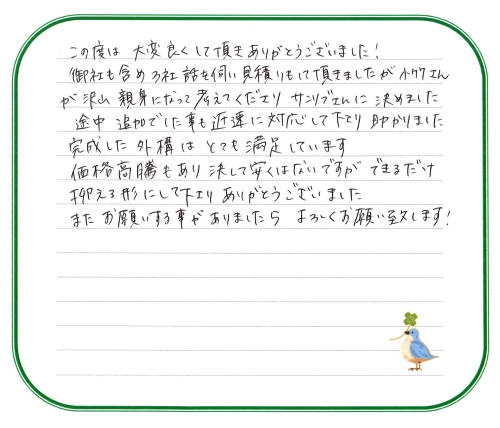 この度は 大変良くして頂きありがとうございました!
御社も含め3社話を伺い見積りもして頂きましたが 小川さん
が沢山 親身になって考えてくださり サンリブさんに決めました
途中 追加でした事も迅速に対応して下さり 助かりました
完成した 外構は とても満足しています
価格高騰もあり 決して安くはないですが できるだけ
抑える形にして下さり ありがとうございました
また お願いする事がありましたら よろしくお願い致します!